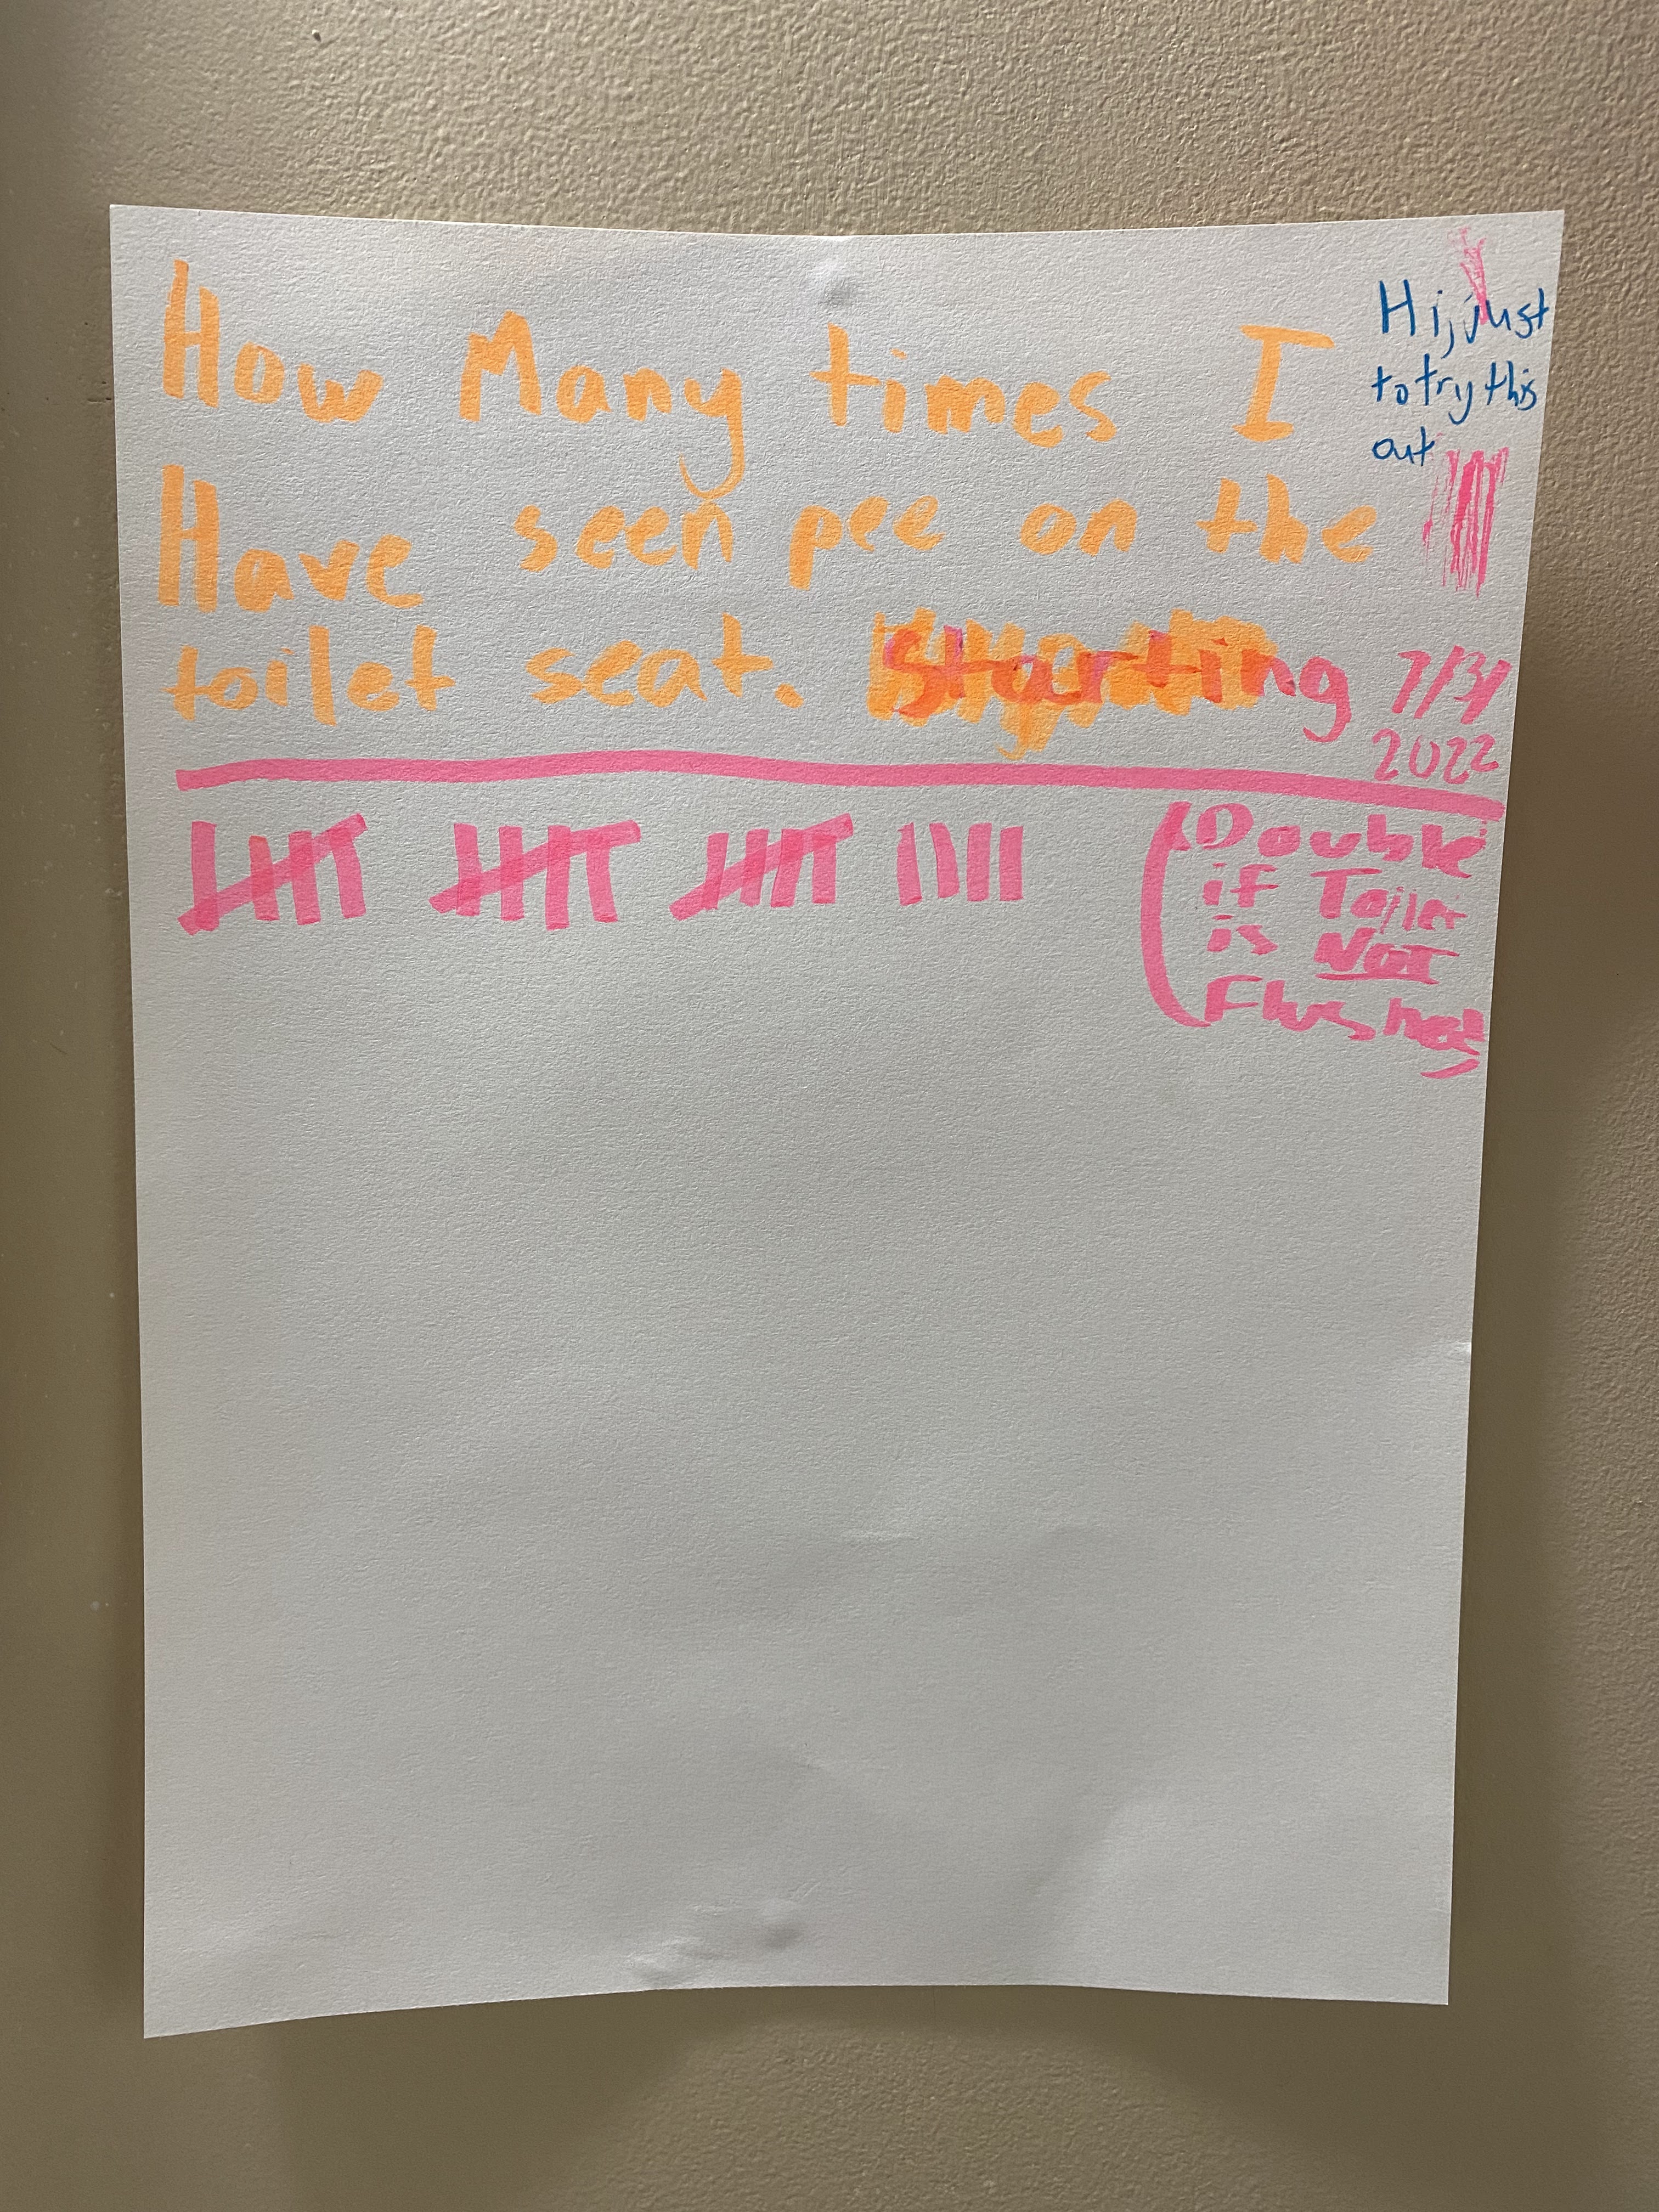 How Many times I
Have seen pee on the
toilet seat. Starting 7/31
2022
Hi, just
to try this
out
(Double
if Toilet
is NOT
Flushed)